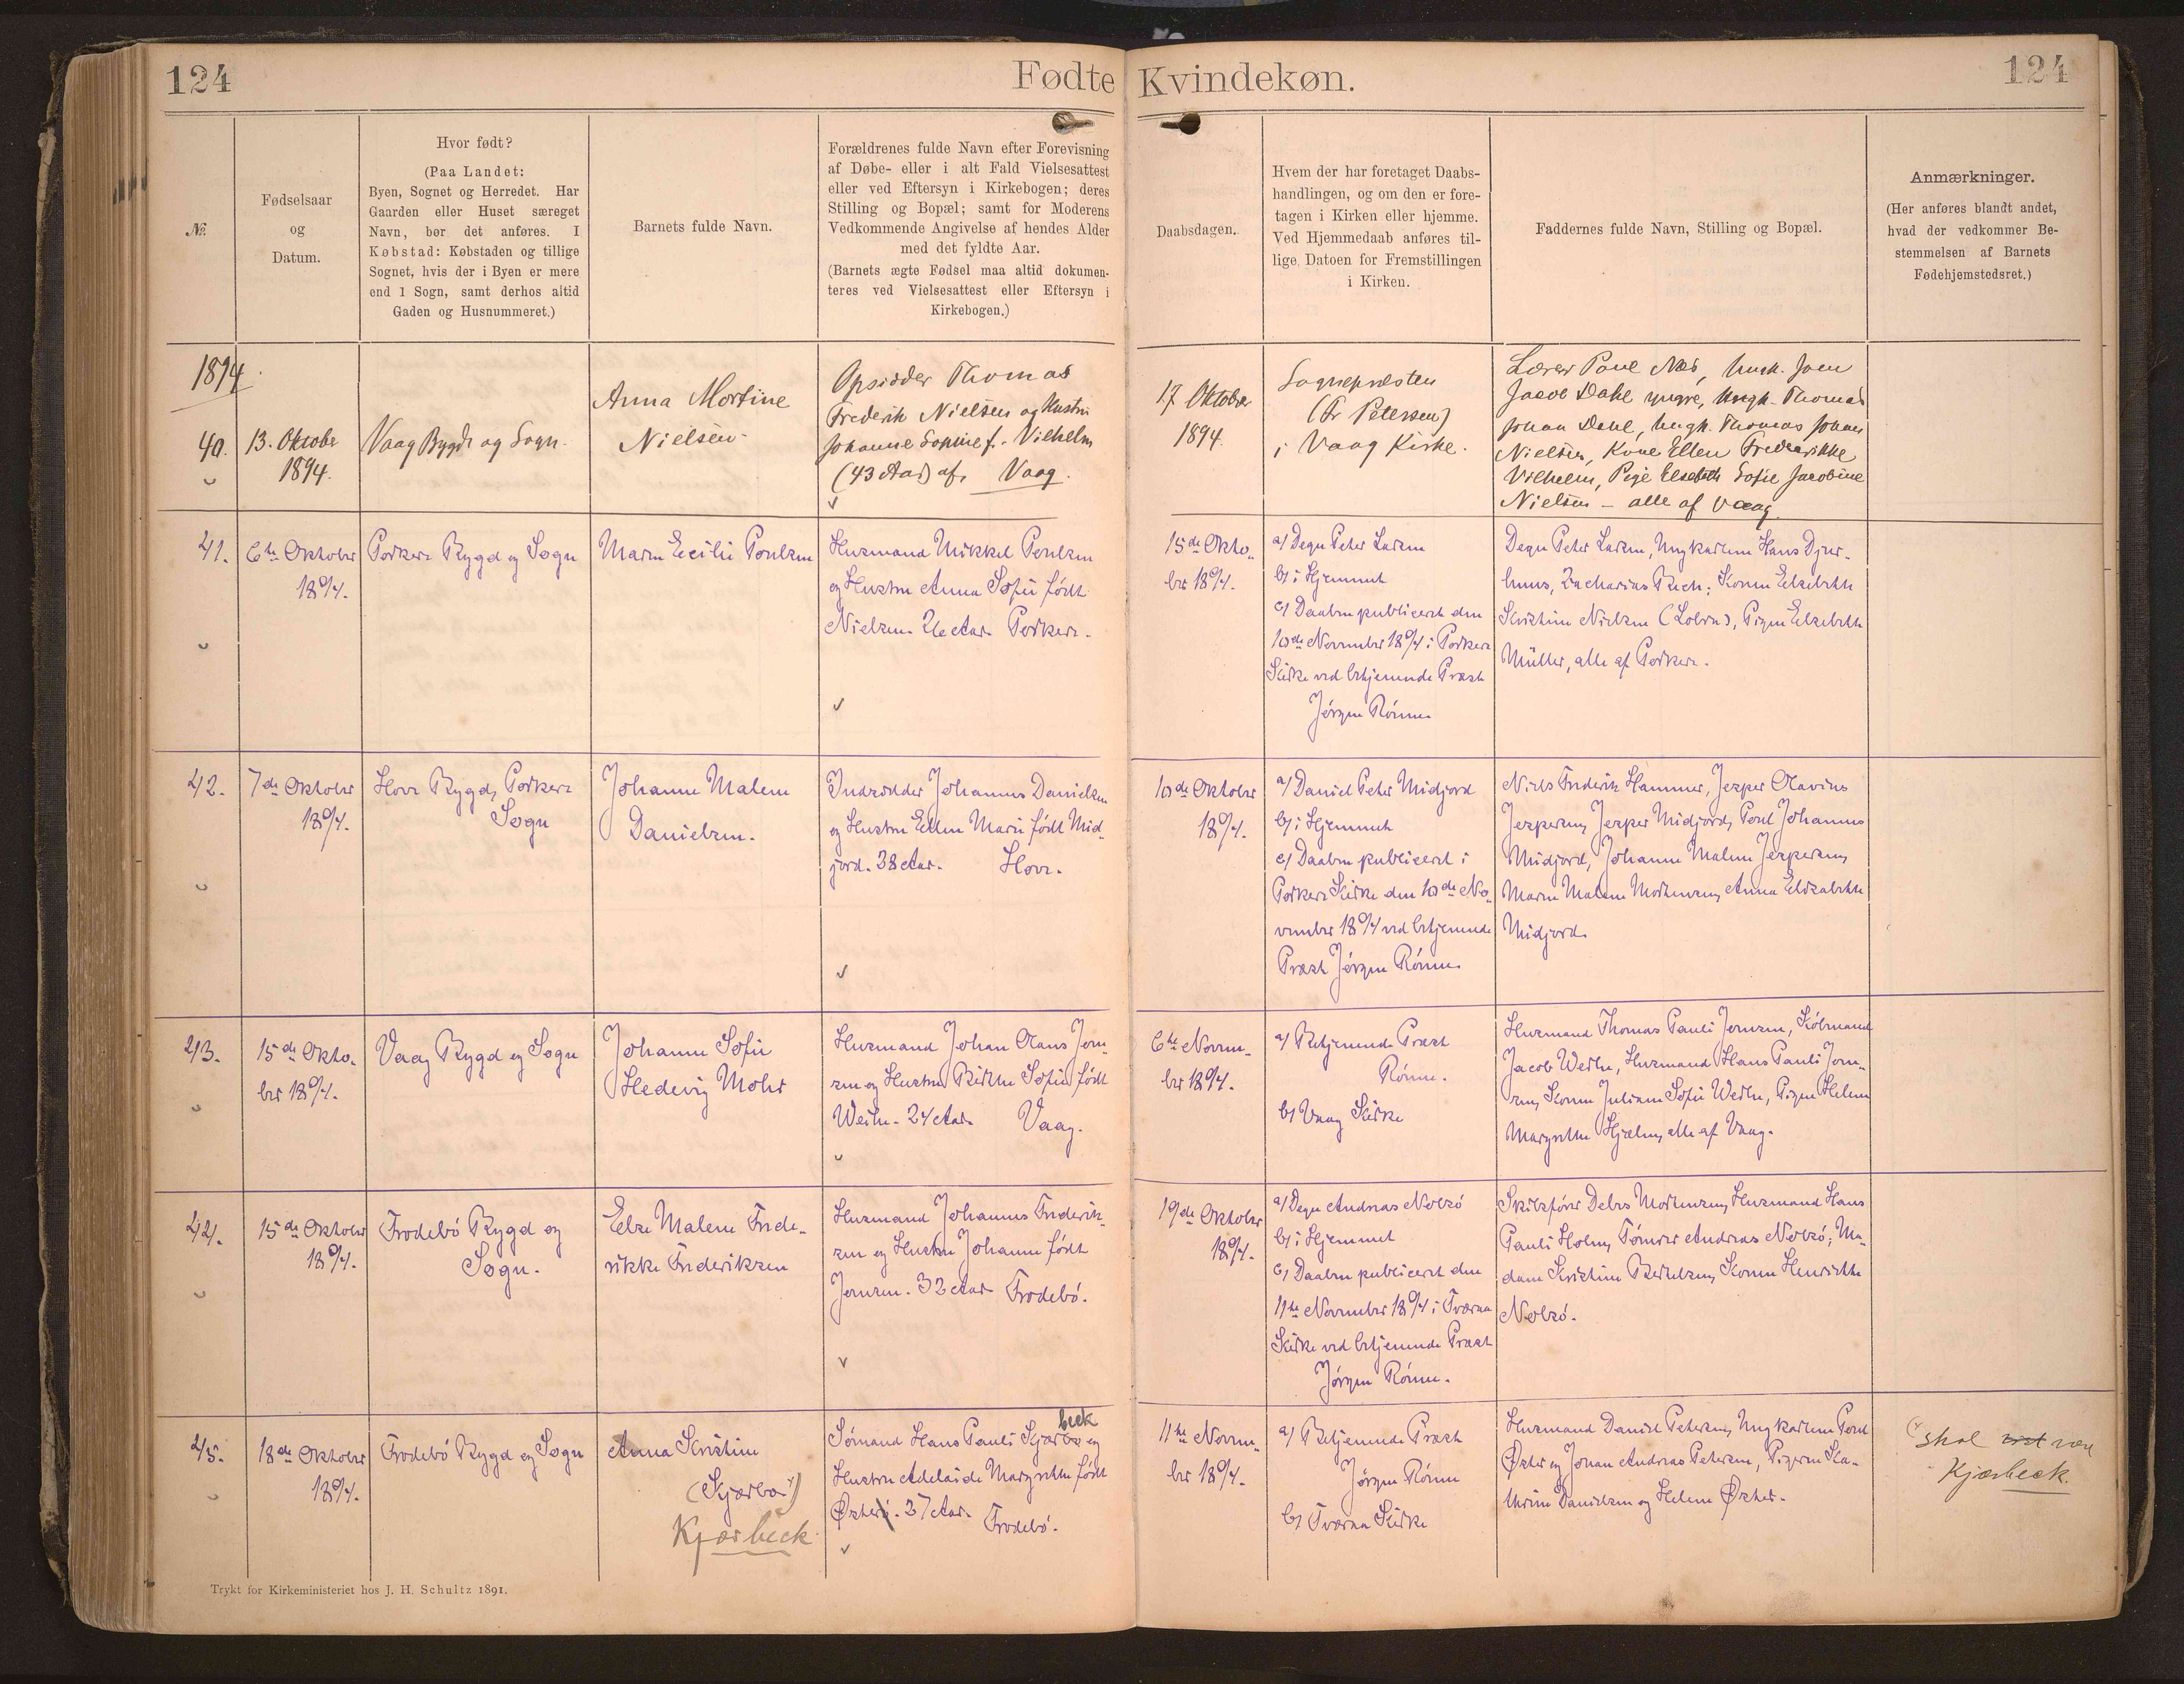 124
Fødte
Kvindekøn.
124
№.
Fødselsaar
og
Datum.
Hvor født?
(Paa Landet:
Byen, Sognet og Herredet. Har
Gaarden eller Huset særeget
Navn, bør det anføres. I
Købstad: Købstaden og tillige
Sognet, hvis der i Byen er mere
end 1 Sogn, samt derhos altid
Gaden og Husnummeret.)
Barnets fulde Navn.
Forældrenes fulde Navn efter Forevisning
af Døbe- eller i alt Fald Vielsesattest
eller ved Eftersyn i Kirkebogen; deres
Stilling og Bopæl; samt for Moderens
Vedkommende Angivelse af hendes Alder
med det fyldte Aar.
(Barnets ægte Fødsel maa altid dokumen-
teres ved Vielsesattest eller Eftersyn i
Kirkebogen.)
Daabsdagen.
Hvem der har foretaget Daabs-
handlingen, og om den er fore-
tagen i Kirken eller hjemme.
Ved Hjemmedaab anføres til-
lige Datoen for Fremstillingen
i Kirken.
Faddernes fulde Navn, Stilling og Bopæl.
Anmærkninger.
(Her anføres blandt andet,
hvad der vedkommer Be-
stemmelsen af Barnets
Fødehjemstedsret.)
1894
40.
13. Oktober
1894.
Vaag Bygd og Sogn.
Anna Mortine
Nielsen
Opsidder Thomas
Frederik Nielsen og Hustru
Johanne Sopine f. Vilhelm
(43 Aar) af Vaag.
17 Oktober
1894.
Sognepræsten
(Fr Petersen)
i Vaag Kirke.
Lærer Poul Næs, Ungk. Joen
Jacob Dahl yngre, Ungk. Thomas
Johan Dahl, Ungk. Thomas Johan
Nielsen, Kone Ellen Frederikke
Vilhelm, Pige Elsebeth Sofie Jacobine
Nielsen – alle af Vaag.
41.
6te Oktober
1894.
Porkere Bygd og Sogn
Maren Cecilie Poulsen
Husmand Mikkel Poulsen
og Hustru Anna Sofie født
Nielsen. 26 Aar. Porkere.
15de Okto-
ber 1894.
a) Degn Peter Larsen
b) i Hjemmet
c) Daaben publiceret den
10de November 1894 i Porkere
Kirke ved betjenende Præst
Jörgen Rönne.
Degn Peter Larsen, Ungkarlene Hans Djur-
huus, Zacharias Bech; Konen Elsebeth
Kristine Nielsen, Pigen Elsebeth
Müller, alle af Porkere.
42.
7de Oktober
1894.
Hove Bygd, Porkere
Sogn
Johanne Malene
Danielsen.
Indsidder Johannes Danielsen
og Hustru Ellen Marie født Mid-
jord. 38 Aar. Hove.
10de Oktober
1894.
a) Daniel Peter Midjord
b) i Hjemmet
c) Daaben publiceret i
Porkere Kirke den 10de No-
vember 1894 ved betjenende
Præst Jörgen Rönne.
Niels Frederik Hammer, Jesper Olavius
Jespersen, Jesper Midjord, Poul Johannes
Midjord, Johanne Malene Jespersen,
Maren Malene Mortensen, Anna Elisabeth
Midjord.
43.
15de Okto-
ber 1894.
Vaag Bygd og Sogn
Johanne Sofie
Hedevig Mohr
Husmand Johan Claus Jen-
sen og Hustru Birthe Sofie født
Weihe. 24 Aar. Vaag.
6te Novem-
ber 1894.
a) Betjenende Præst
Rönne.
b) Vaag Kirke
Husmand Thomas Pauli Jensen, Köbmand
Jacob Weihe, Husmand Hans Pauli Jen-
sen, Konen Juliane Sofie Weihe, Pigen Helene
Margrethe Hjælm, alle af Vaag.
44.
15de Oktober
1894.
Frodebö Bygd og
Sogn.
Else Malene Frede-
rikke Frederiksen
Husmand Johannes Frederik-
sen og Hustru Johanne født
Jensen. 32 Aar. Frodebö.
19de Oktober
1894.
a) Degn Andreas Nolsö
b) i Hjemmet
c) Daaben publiceret den
11te November 1894 i Tværaa
Kirke ved betjenende Præst
Jörgen Rönne.
Skibsförer Debes Mortensen, Husmand Hans
Pauli Holm, Tömrer Andreas Nolsö; Ma-
dam Kristine Berthelsen, Konen Henriette
Nolsö.
45.
18de Oktober
1894.
Frodebö Bygd og Sogn
Anna Kristine
(Kjærbo)
Kjærbeck
beck
Sömand Hans Pauli Kjærbo og
Hustru Adelaide Margrethe født
Øster. 27 Aar. Frodebö.
11te Novem-
ber 1894.
a) Betjenende Præst
Jörgen Rönne
b) Tværaa Kirke
Husmand Daniel Petersen, Ungkarlene Poul
Øster og Johan Andreas Petersen, Pigerne Ka-
thrine Danielsen og Helene Øster.
skal være
Kjærbeck.
Trykt for Kirkeministeriet hos J. H. Schultz 1891.